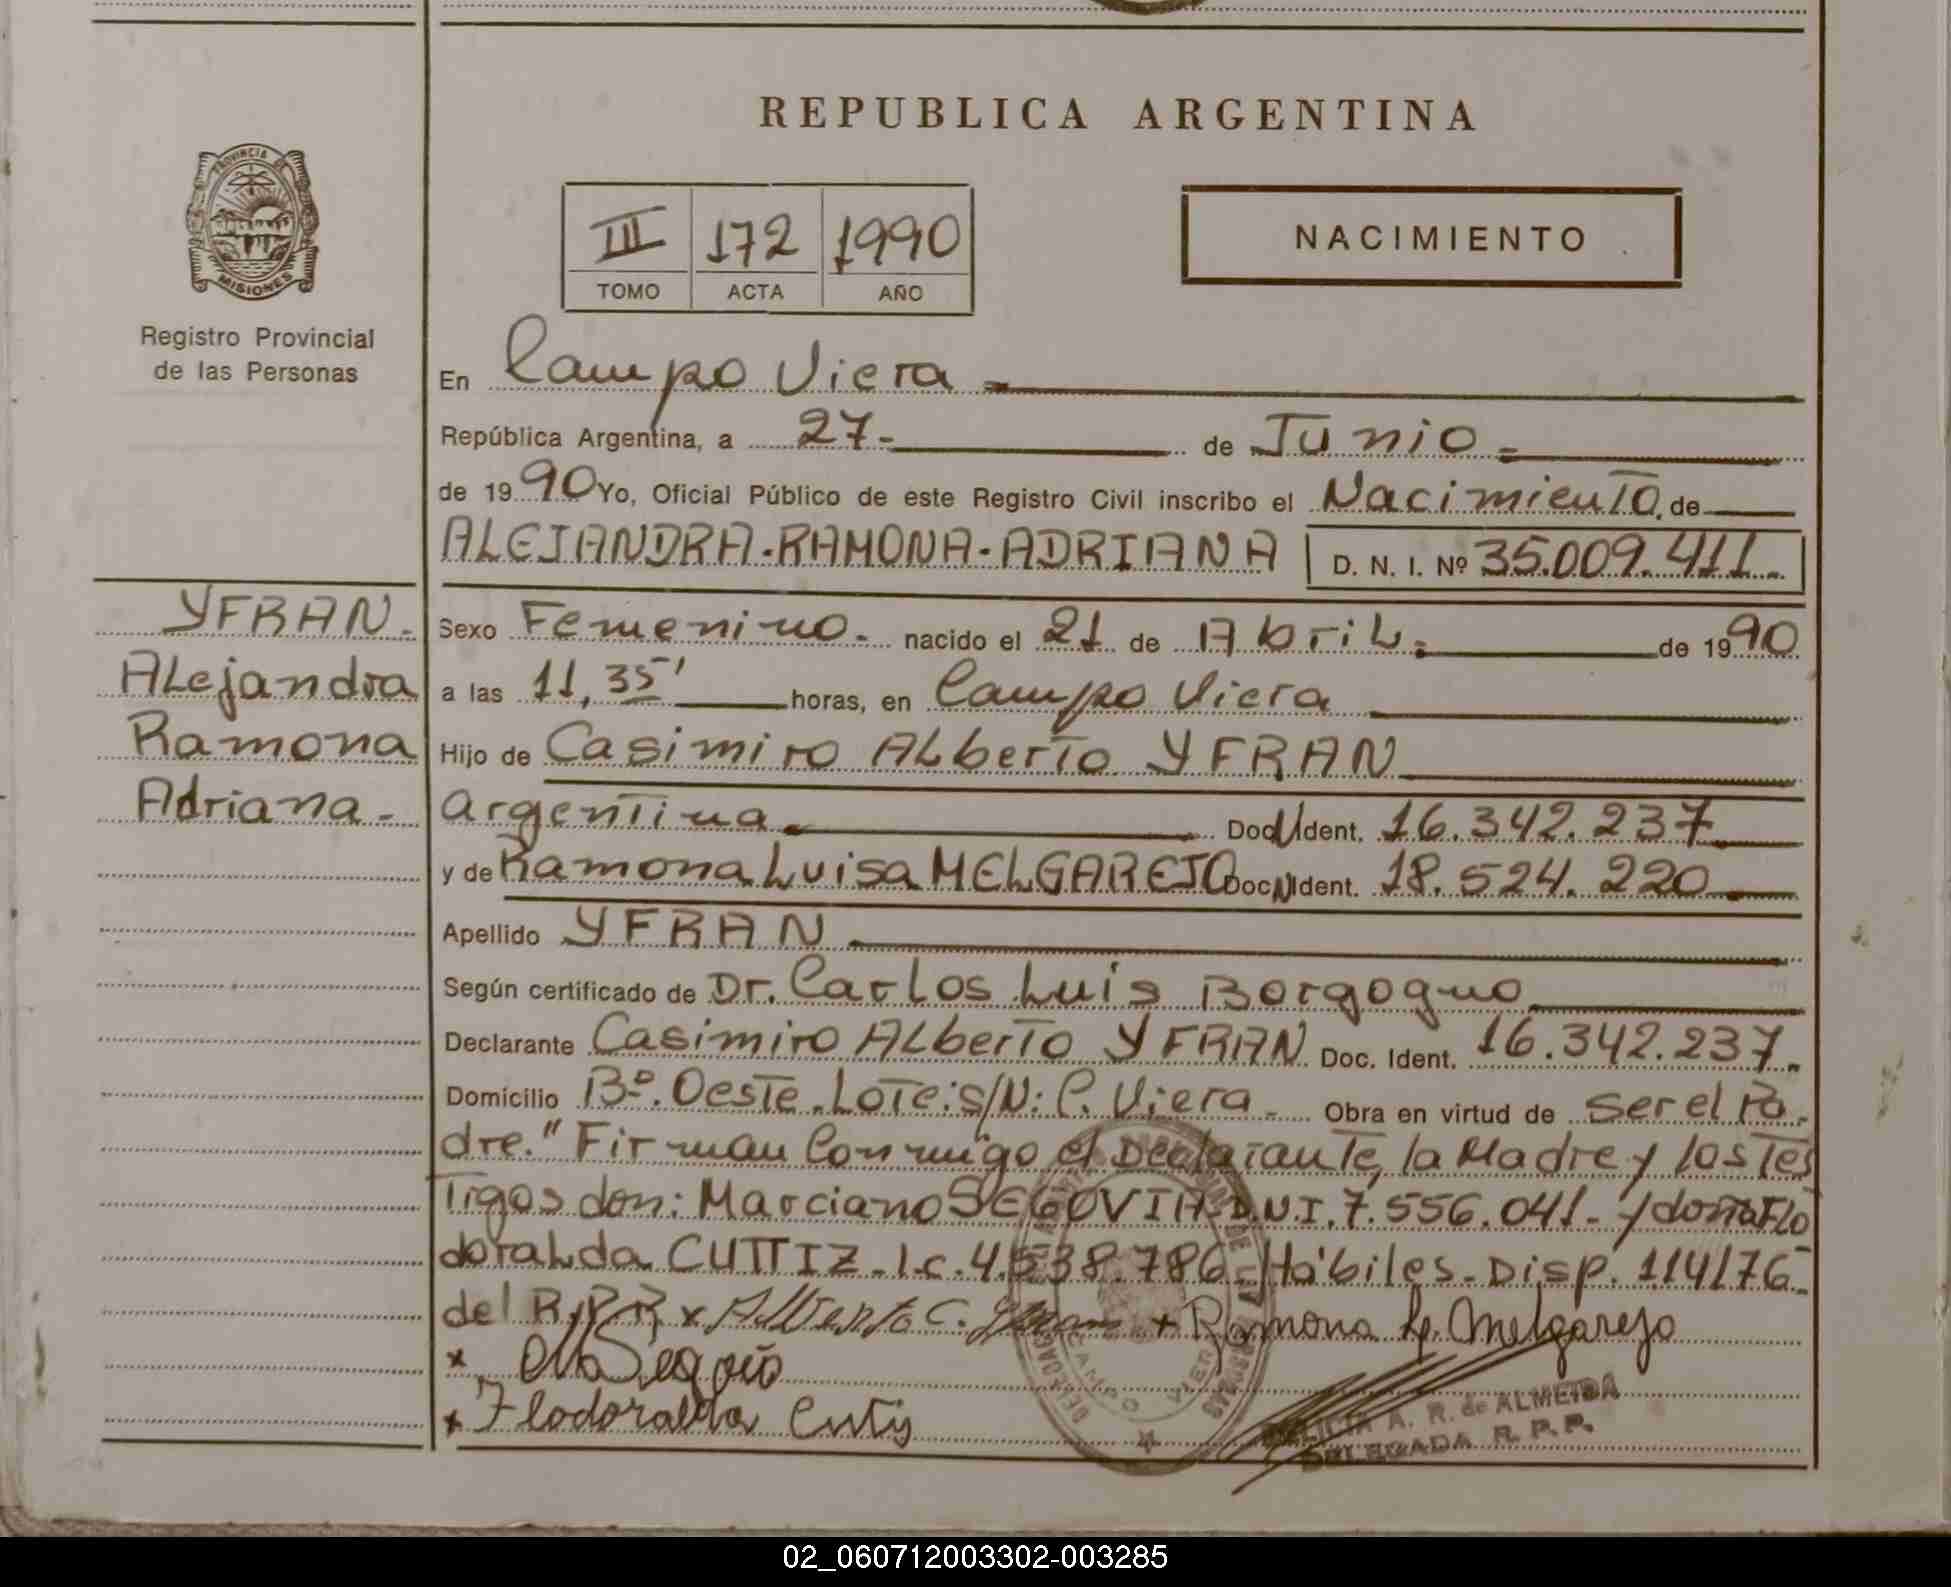 REPUBLICA ARGENTINA
PROVINCIA DE
MISIONES
Registro Provincial
de las Personas
III 172 1990
TOMO ACTA AÑO
NACIMIENTO
En Campo Viera
República Argentina, a 27- de Junio
de 1990 Yo, Oficial Público de este Registro Civil inscribo el Nacimiento. de
ALEJANDRA-RAMONA-ADRIANA D. N. I. Nº 35.009.411.
YFRAN.
Alejandra
Ramona
Adriana-
Sexo Femenino- nacido el 21 de Abril. de 1990
a las 11,35' horas, en Campo Viera
Hijo de Casimiro Alberto YFRAN
argentina Doc N Ident. 16.342.237
y de Ramona Luisa MELGAREJO Doc N Ident. 18.524.220
Apellido YFRAN
Según certificado de Dr. Carlos Luis Borgogno
Declarante Casimiro Alberto YFRAN Doc. Ident. 16.342.237.
Domicilio Bº. Oeste. Lote: s/N: C. Viera- Obra en virtud de ser el Pa-
dre." Firman conmigo el Declarante, la Madre y los Tes
Tigos don: Marciano SEGOVIA D.N.I. 7.556.041- y doña Flo
doralda CUTTIZ- l.c. 4.538.786. Hábiles- Disp. 114/76-
del R.P.P. x Alberto C. Yfran + Ramona L. Melgarejo
x Segovia
x Flodoralda Cutis
CAMPO VIERA
A. R. de ALMEIDA
DELEGADA R. P. P.
02_060712003302-003285